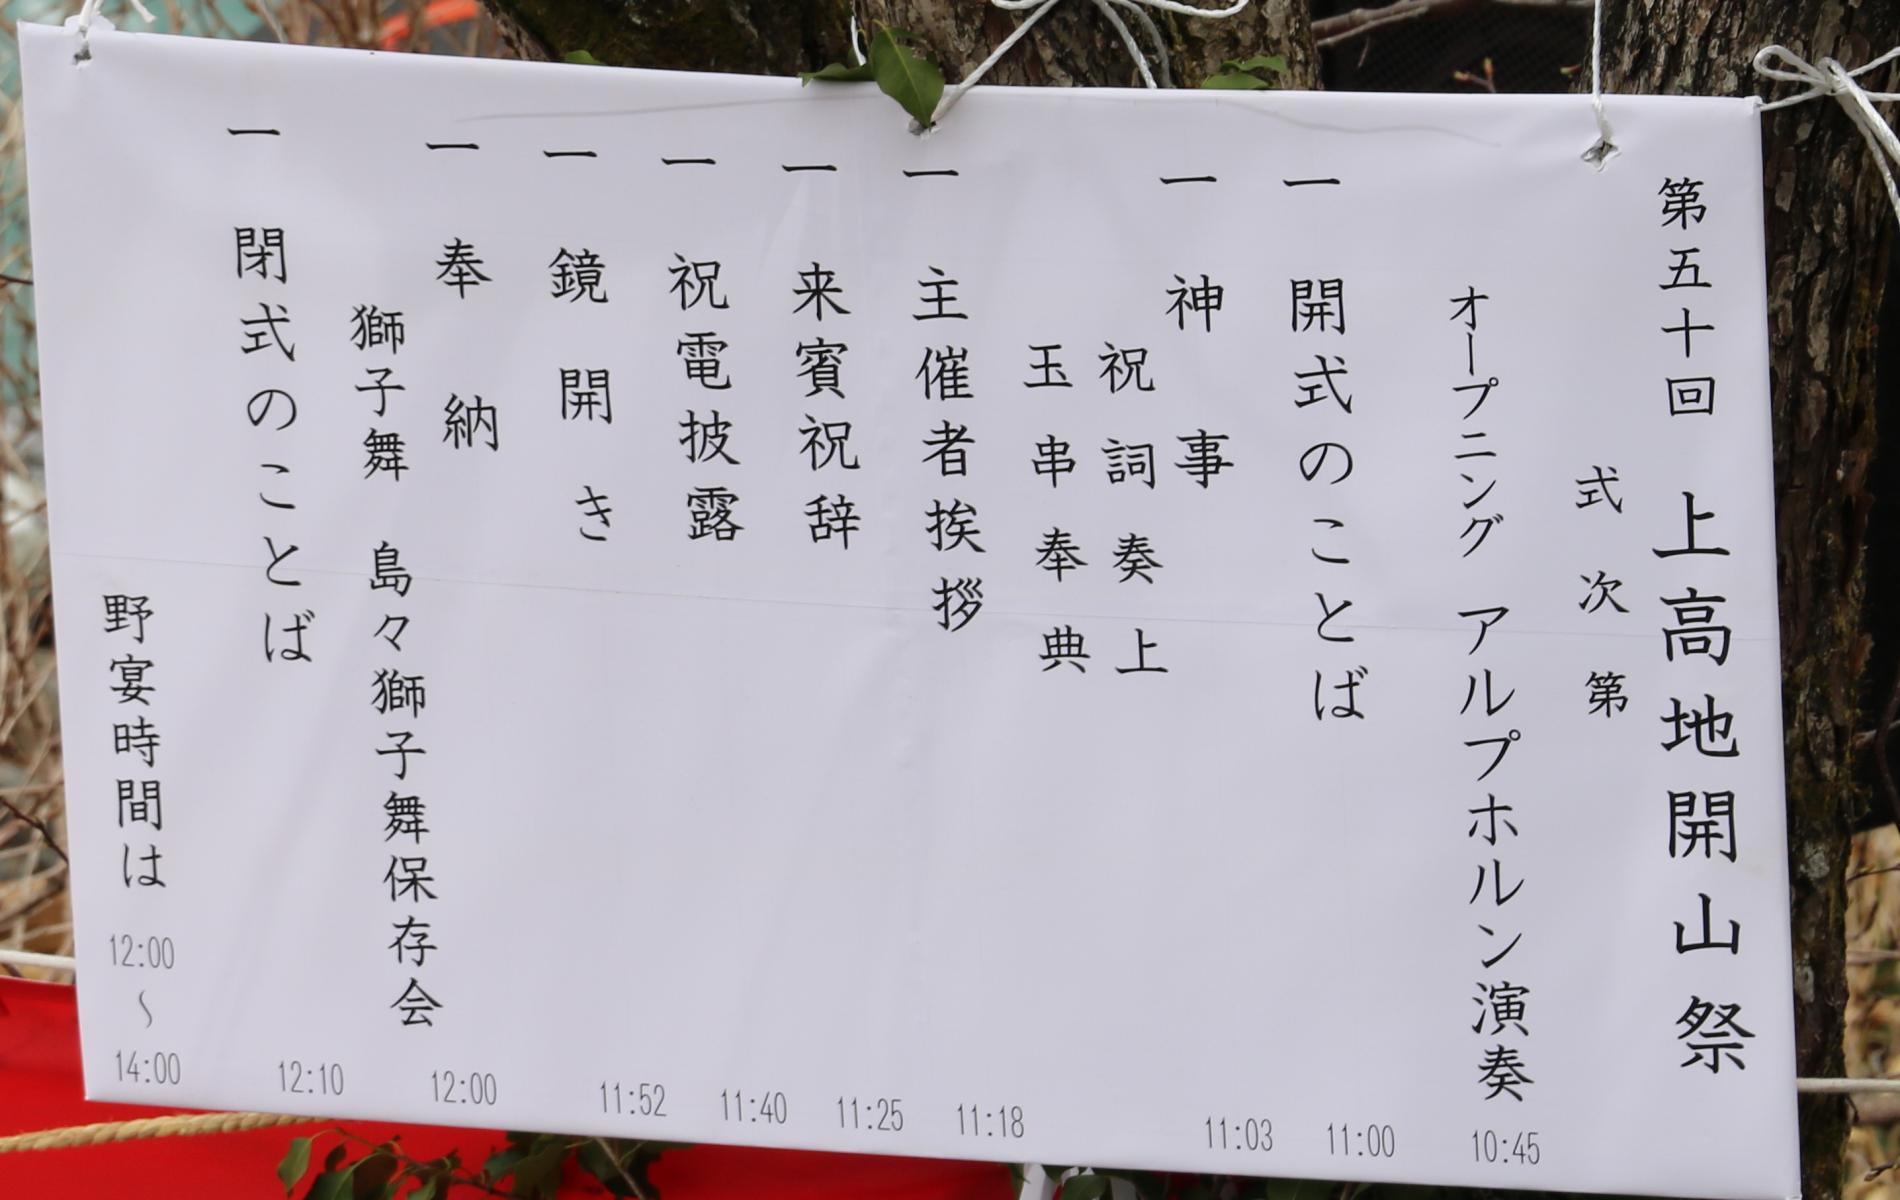 第五十回 上高地開山祭
式次第
オープニング アルプホルン演奏 10:45
一 開式のことば 11:00
一 神事 11:03
祝詞奏上
玉串奉典
一 主催者挨拶 11:18
一 来賓祝辞 11:25
一 祝電披露 11:40
一 鏡開き 11:52
一 奉納 12:00
獅子舞 島々獅子舞保存会
一 閉式のことば 12:10
野宴時間は 12:00～14:00